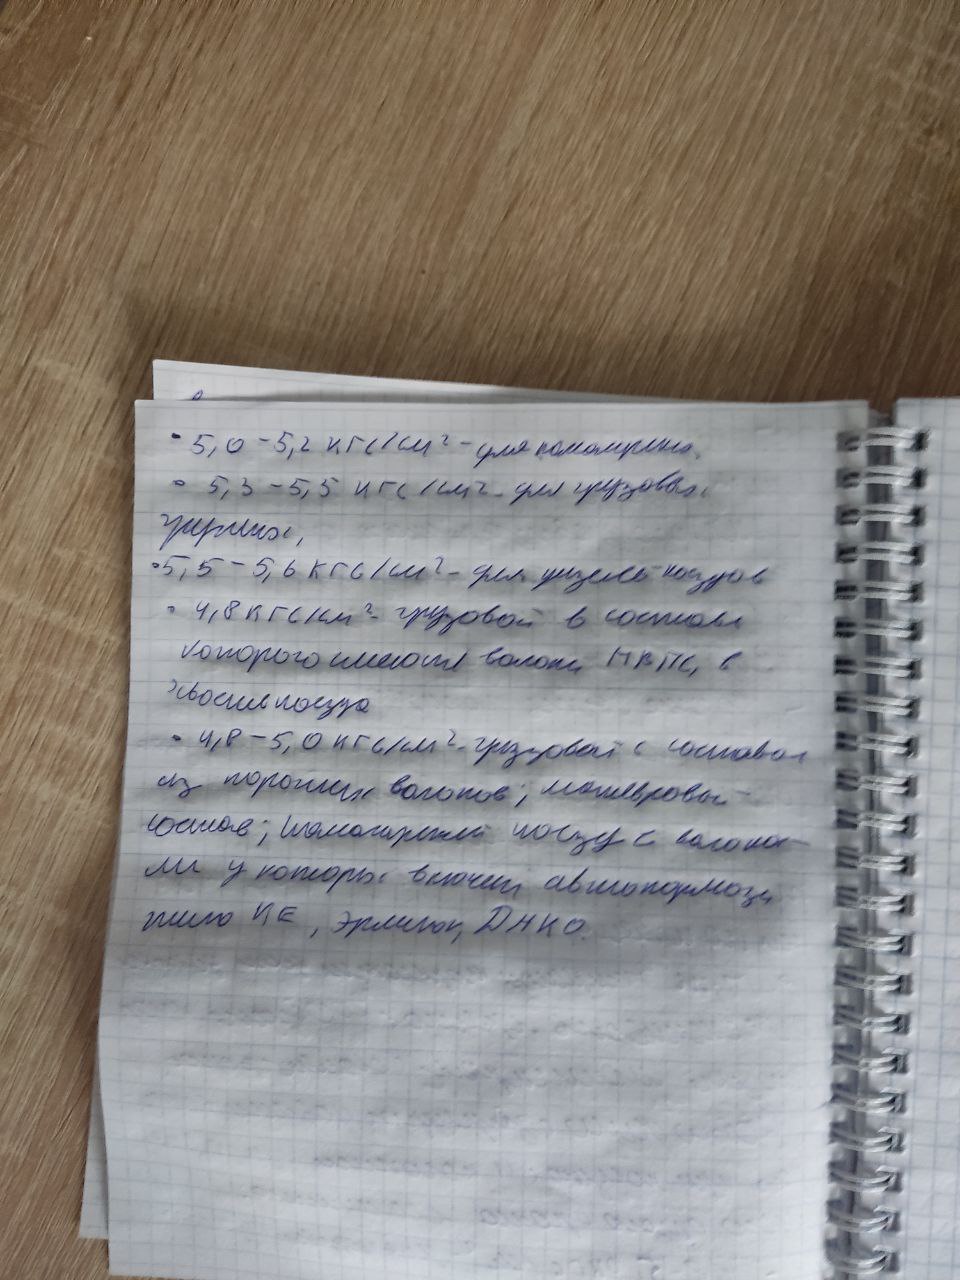 • 5,0 - 5,2 кгс/см² - для
• 5,3 - 5,5 кгс/см² - для грузовых
• 5,5 - 5,6 кгс/см² - для дизель поездов
• 4,8 кгс/см² - грузовой в составе
которого имеются вагоны МВПС, в
хвосте поезда
• 4,8 - 5,0 кгс/см² - грузовой с составом
из порожних вагонов; маневровый
состав; пассажирский поезд с вагона-
ми у которых включен автотормоза
типа КЕ, Эрликон, ДАКО.